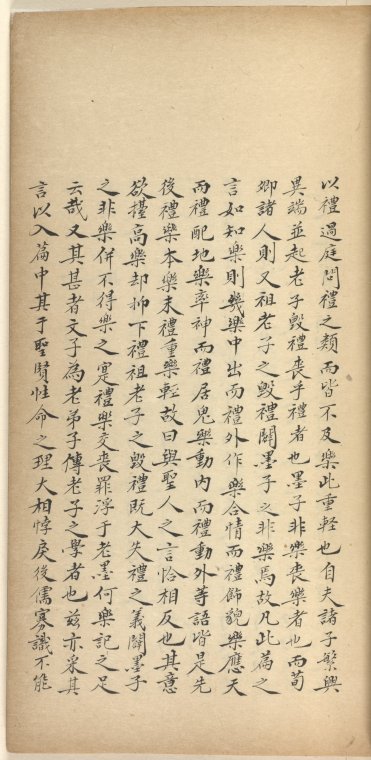 以禮過庭問禮之類而皆不及樂此重輕也自夫諸子繁興
異端並起老子毀禮喪乎禮者也墨子非樂喪樂者也而荀
卿諸人則又祖老子之毀禮闢墨子之非樂焉故凡此篇之
言如知樂則幾樂中出而禮外作樂合情而禮飾貌樂應天
而禮配地樂率神而禮居鬼樂動內而禮動外等語皆是先
後禮樂本樂末禮重樂輕故曰與聖人之言恰相反也其意
欲擡高樂却抑下禮祖老子之毀禮既大失禮之義闢墨子
之非樂併不得樂之寔禮樂交喪罪浮于老墨何樂記之足
云哉又其甚者文子為老弟子傳老子之學者也茲亦采其
言以入篇中其于聖賢性命之理大相悖戾後儒寡識不能